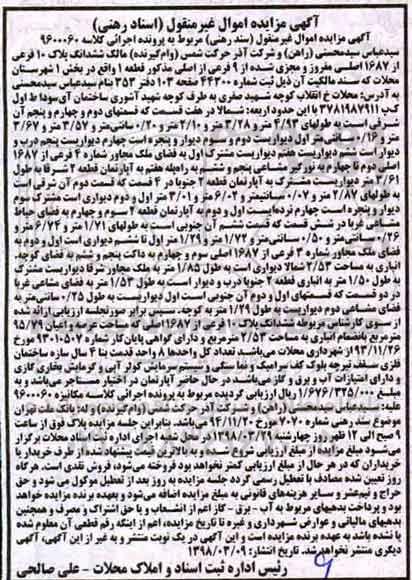 آگهی مزایده اموال غیرمنقول (اسناد رهنی)
آگهی مزایده اموال غیرمنقول (سند رهنی) مربوط به پرونده اجرائی کلاسه ۹۶۰۰۰۶۰
سیدعباس سیدمحسنی (راهن) و شرکت آذر حرکت شمس (وام‌گیرنده) مالک ششدانگ پلاک ۱۰ فرعی
از ۱۶۸۷ اصلی مفروز و مجزی شده از ۹ فرعی از اصلی مذکور قطعه ۱ واقع در بخش ۱ شهرستان
محلات که سند مالکیت آن ذیل ثبت شماره ۴۴۳۰۰ صفحه ۱۰۳ دفتر ۳۵۳ بنام سیدعباس سیدمحسنی
به آدرس: محلات خ انقلاب کوچه شهید صفری به طرف کوچه شهید آشوری ساختمان آی‌سودا ط اول
کدپ ۳۷۸۱۹۸۷۹۱۱ با این حدود اربعه: شمالا در هفت قسمت که قسمتهای دوم و چهارم و پنجم آن
شرقی است به طولهای ۴/۹۳ متر و ۳/۲۸ متر و ۲/۱۰ متر و ۰/۲۰ سانتی‌متر و ۳/۵۷ متر و ۳/۶۷
متر و ۰/۱۶ سانتی‌متر اول دیواریست دوم و سوم دیوار و پنجره است چهارم دیواریست پنجم درب و
دیوار است ششم دیواریست هفتم دیواریست مشترک اول به فضای ملک مجاور شماره ۴ فرعی از ۱۶۸۷
اصلی دوم تا چهارم به نورگیر مشاعی پنجم و ششم به راه‌پله هفتم به آپارتمان قطعه ۲ شرقا به طول
۳/۶۱ متر دیواریست مشترک به آپارتمان قطعه ۲ جنوبا در ۴ قسمت که قسمت دوم آن شرقی است
به طولهای ۲/۸۷ متر و ۰/۰۷ سانتیمتر و ۶/۰۲ متر و ۳/۰۱ متر اول و دوم دیواری است سوم
دیوار و پنجره است چهارم نرده‌ایست اول و دوم به آپارتمان قطعه ۲ سوم و چهارم به فضای حیاط
مشاعی غربا در شش قسمت که قسمت ششم آن جنوبی است به طولهای ۱/۷۱ متر و ۶/۷۴ متر و
۰/۲۶ سانتی‌متر و ۰/۵۰ سانتی‌متر و ۱/۷۲ متر و ۱/۲۹ متر اول تا ششم دیواری است اول و دوم به
فضای ملک مجاور شماره ۳ فرعی از ۱۶۸۷ اصلی سوم و چهارم به داکت پنجم و ششم به فضای کوچه.
انباری به مساحت ۲/۵۳ شمالا دیواری است به طول ۱/۸۵ متر به ملک مجاور شرقا دیواریست مشترک
به طول ۱/۵۰ متر به انباری قطعه ۲ جنوبا درب و دیوار است به طول ۱/۵۳ متر به فضای مشاعی غربا
در دو قسمت که قسمتهای اول و دوم آن جنوبی است اول دیواریست به طول ۰/۲۵ سانتی‌متر به
فضای مشاعی دوم دیواریست به طول ۱/۲۹ متر به کوچه. سپس برابر صورتجلسه ارزیابی ارائه شده
از سوی کارشناس مربوطه ششدانگ پلاک ۱۰ فرعی از ۱۶۸۷ اصلی که مساحت عرصه و اعیان ۹۵/۷۹
مترمربع بانضمام انباری به مساحت ۲/۵۳ مترمربع و دارای گواهی پایان کار شماره ۹۳۰۱۰۵۰۷ مورخ
۹۳/۱۱/۲۶ از شهرداری محلات میباشد تعداد کل واحدها ۸ واحد قدمت بنا ۴ سال سازه ساختمان
فلزی سقف تیرچه بلوک کف سرامیک و نما سنگی و سیستم سرمایش کولر آبی و گرمایش بخاری گازی
و دارای امتیازات آب و برق و گاز می‌باشد در حال حاضر آپارتمان در اختیار مستاجر می‌باشد و به
مبلغ ۱/۶۷۶/۳۲۵/۰۰۰ ریال ارزیابی گردیده مربوط به پرونده اجرائی کلاسه مکانیزه ۹۶۰۰۰۶۰
علیه: سیدعباس سیدمحسنی (راهن) و شرکت آذر حرکت شمس (وام‌گیرنده) و له: بانک ملت تهران
موضوع سند رهنی شماره ۷۰۷۰ مورخ ۹۴/۱۱/۲۰ می‌باشد. بنابراین جلسه مزایده پلاک فوق از ساعت
۹ صبح الی ۱۲ ظهر روز چهارشنبه ۱۳۹۸/۰۳/۲۹ در محل شعبه اجرای اداره ثبت اسناد محلات برگزار
می‌شود مبلغ مزایده از مبلغ ارزیابی شروع شده و به بالاترین قیمت پیشنهاد شده از طرف خریدار یا
خریداران که در هر حال از مبلغ ارزیابی کمتر نخواهد بود فروخته می‌شود، فروش نقدی است. هرگاه
روز تعیین شده مصادف با تعطیل رسمی گردد جلسه مزایده به روز بعد از تعطیل موکول می شود و حق
حراج و نیم‌عشر و سایر هزینه‌های قانونی به مبلغ مزایده اضافه می‌شود و بعهده برنده مزایده خواهد
بود و پرداخت بدهیهای مربوط به آب - برق - گاز اعم از انشعاب و یا حق اشتراک و مصرف و همچنین
بدهیهای مالیاتی و عوارض شهرداری و غیره تا تاریخ مزایده، اعم از اینکه رقم قطعی آن معلوم شده
یا نشده باشد به عهده برنده مزایده است و این آگهی در یک نوبت منتشر و به غیر از این آگهی، آگهی
دیگری منتشر نخواهد شد. تاریخ انتشار: ۱۳۹۸/۰۳/۰۹
رئیس اداره ثبت اسناد و املاک محلات - علی صالحی